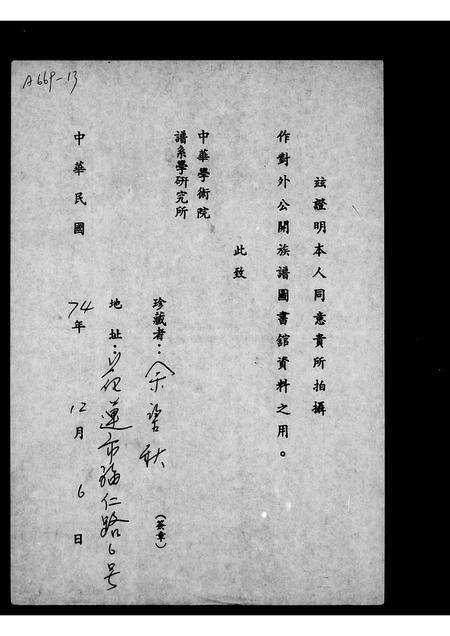 A669-13
茲證明本人同意貴所拍攝
作對外公開族譜圖書館資料之用。
此致
中華學術院
譜系學研究所
珍藏者：余 秋（簽章）
地址：花蓮市福仁路6号
中華民國74年12月6日